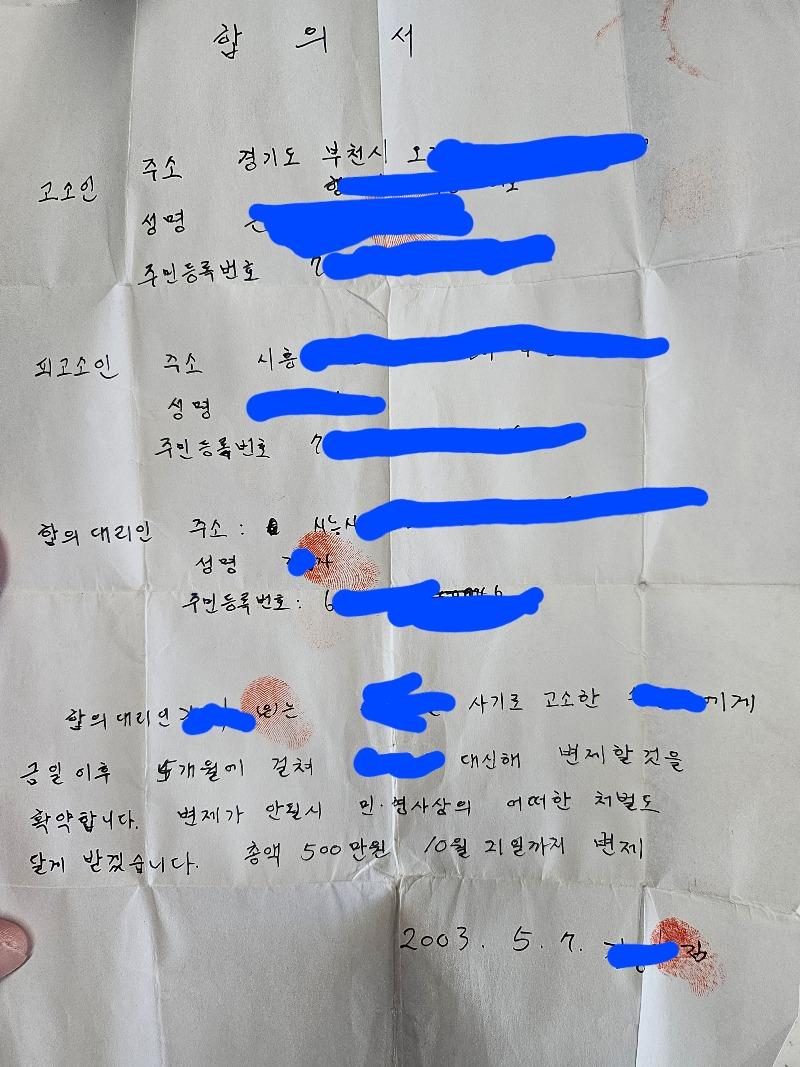 합 의 서
고소인 주소 경기도 부천시
성명
주민등록번호 7
피고소인 주소 시흥
성명
주민등록번호 7
합의대리인 주소 :
성명
주민등록번호 : 6
합의대리인 는 사기로 고소한 에게
금일 이후 5개월에 걸쳐 대신해 변제할것을
확약합니다. 변제가 안될시 민·형사상의 어떠한 처벌도
달게 받겠습니다. 총액 500만원 10월 21일까지 변제
2003. 5. 7.